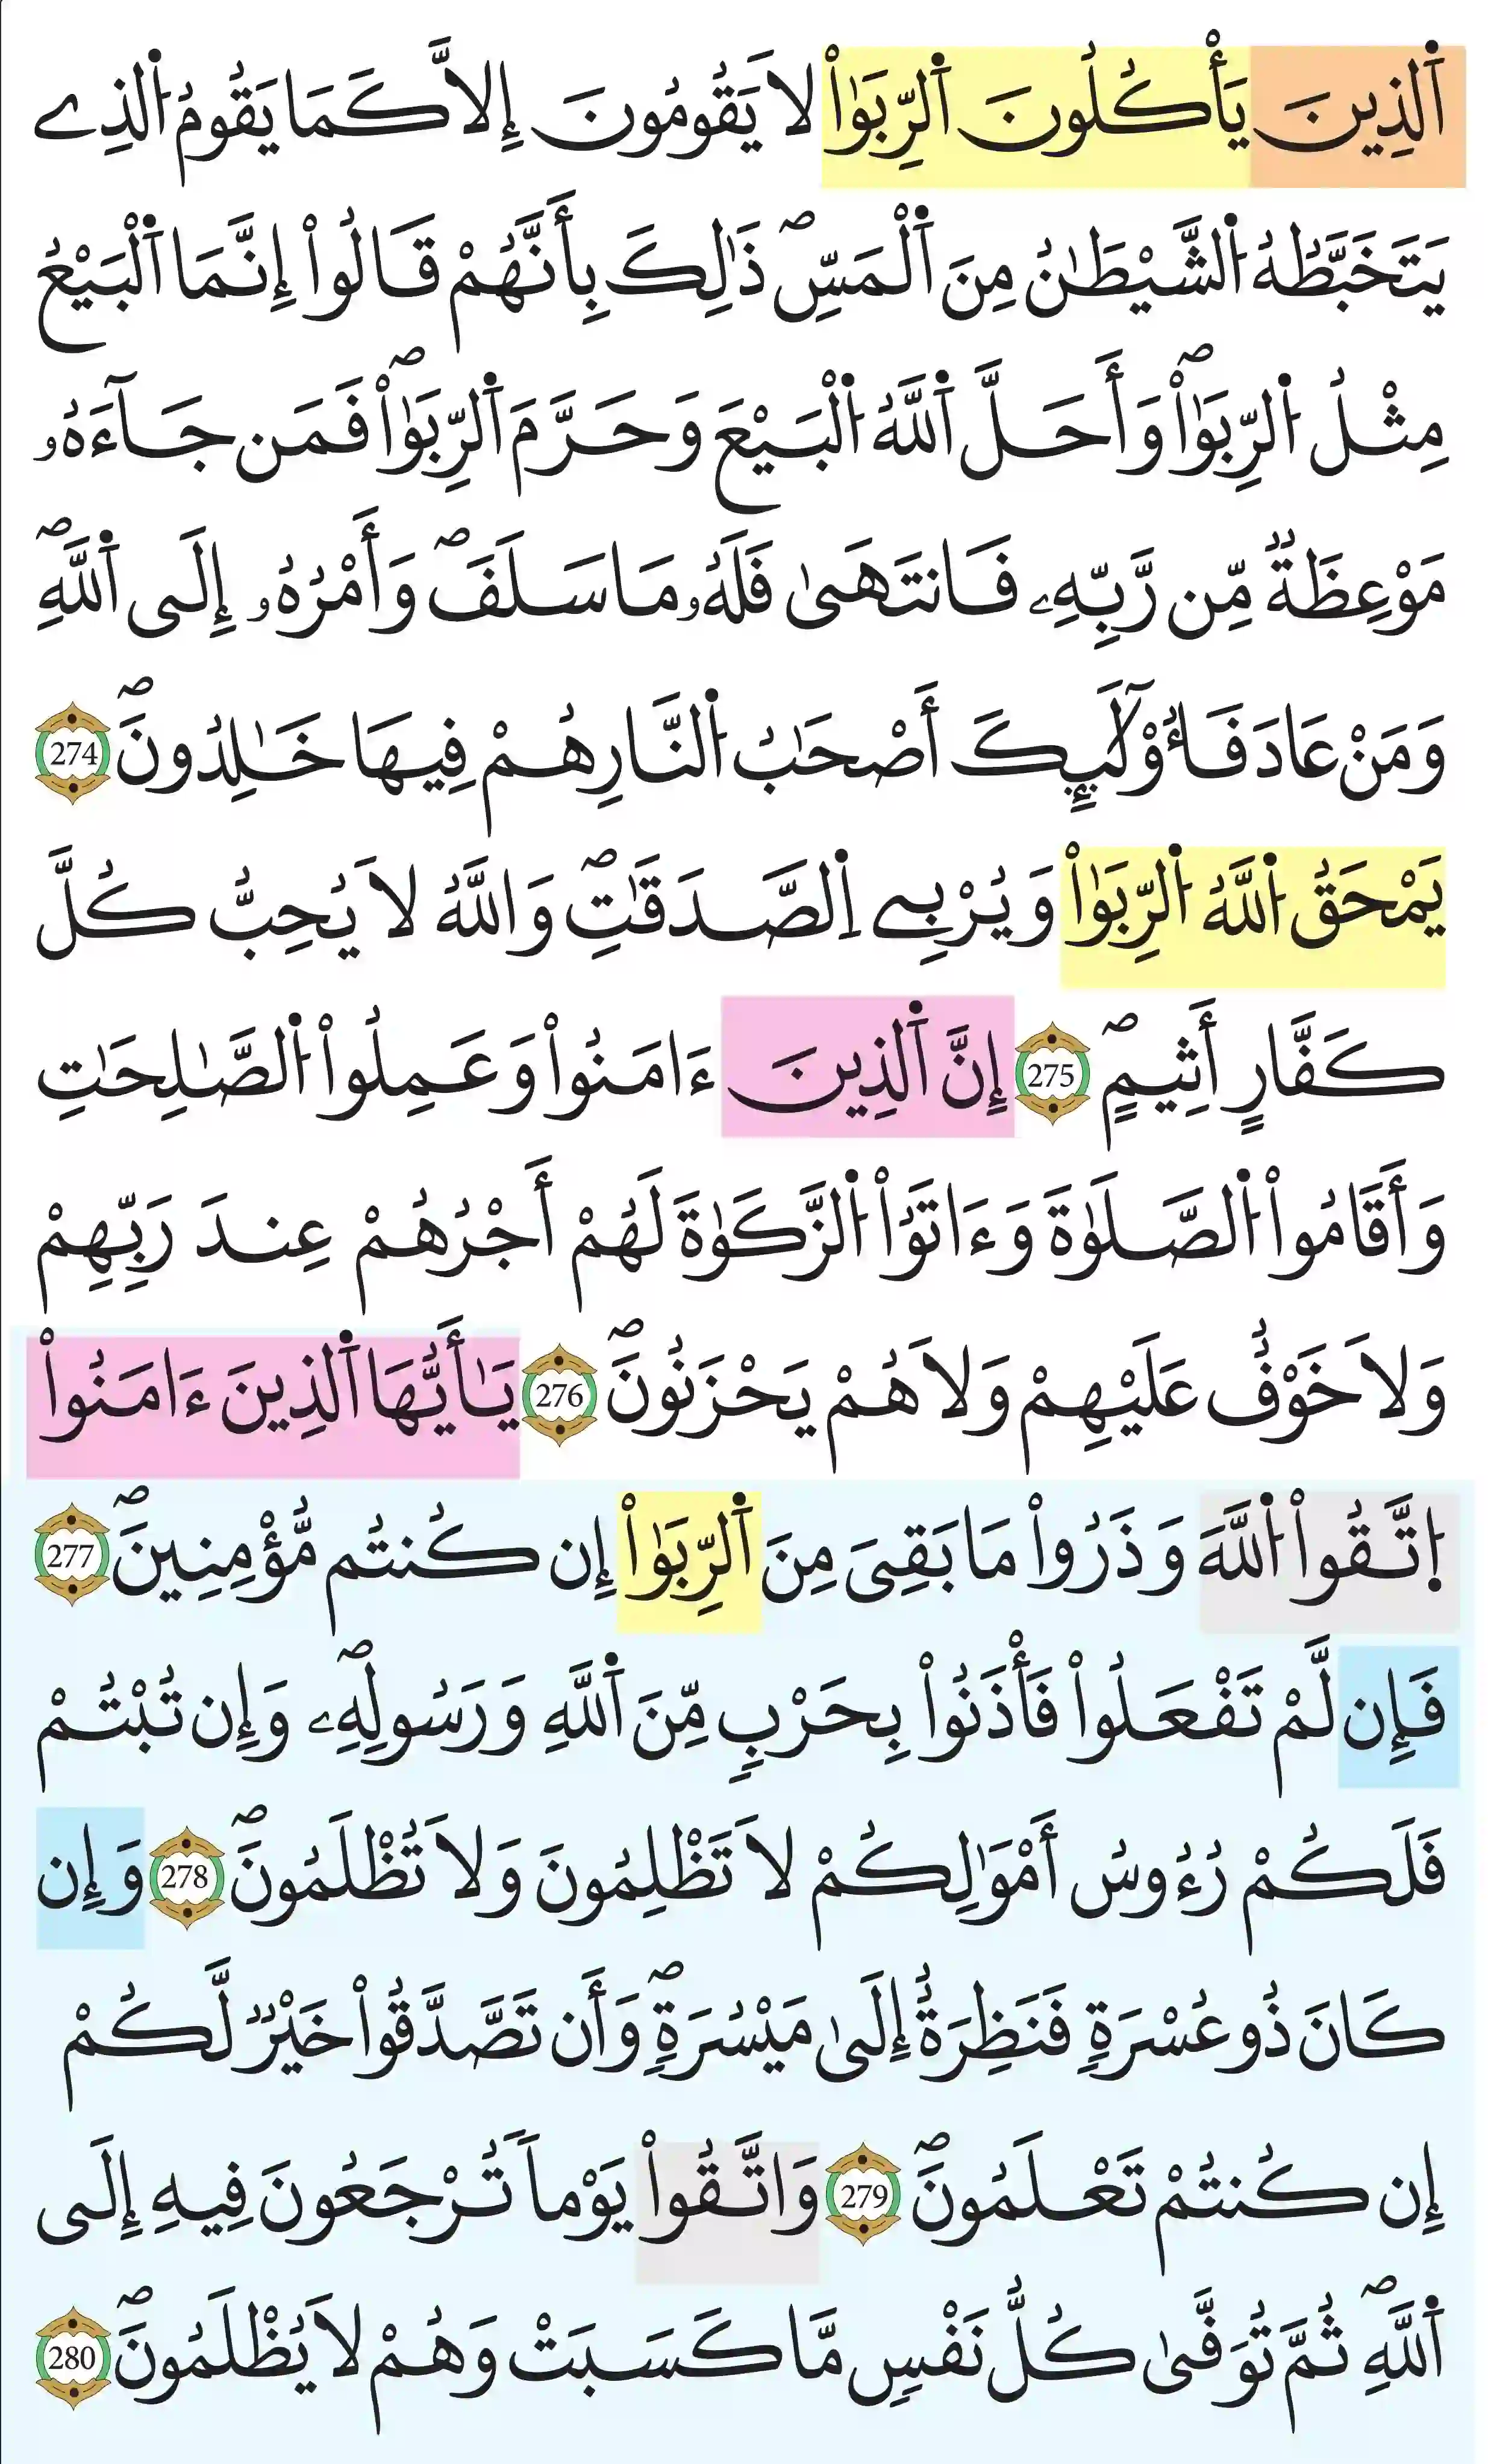 اَ۬لذِينَ يَأْكُلُونَ اَ۬لرِّبَوٰاْ لَا يَقُومُونَ إِلَّا كَمَا يَقُومُ اُ۬لذِے
يَتَخَبَّطُهُ اُ۬لشَّيْطَٰنُ مِنَ اَ۬لْمَسِّۖ ذَٰلِكَ بِأَنَّهُمْ قَالُواْ إِنَّمَا اَ۬لْبَيْعُ
مِثْلُ اُ۬لرِّبَوٰاْۖ وَأَحَلَّ اَ۬للَّهُ اُ۬لْبَيْعَ وَحَرَّمَ اَ۬لرِّبَوٰاْۖ فَمَن جَآءَهُۥ
مَوْعِظَةٞ مِّن رَّبِّهِۦ فَانتَهَىٰ فَلَهُۥ مَا سَلَفَۖ وَأَمْرُهُۥ إِلَى اَ۬للَّهِۖ
وَمَنْ عَادَ فَأُوْلَٰٓئِكَ أَصْحَٰبُ اُ۬لنَّارِ هُمْ فِيهَا خَٰلِدُونَۖ 274
يَمْحَقُ اُ۬للَّهُ اُ۬لرِّبَوٰاْ وَيُرْبِے اِ۬لصَّدَقَٰتِۖ وَاللَّهُ لَا يُحِبُّ كُلَّ
كَفَّارٍ أَثِيمٍۖ 275 إِنَّ اَ۬لذِينَ ءَامَنُواْ وَعَمِلُواْ اُ۬لصَّٰلِحَٰتِ
وَأَقَامُواْ اُ۬لصَّلَوٰةَ وَءَاتَوُاْ اُ۬لزَّكَوٰةَ لَهُمْ أَجْرُهُمْ عِندَ رَبِّهِمْ
وَلَا خَوْفٌ عَلَيْهِمْ وَلَا هُمْ يَحْزَنُونَۖ 276 يَٰأَيُّهَا اَ۬لذِينَ ءَامَنُواْ
اُ۪تَّقُواْ اُ۬للَّهَ وَذَرُواْ مَا بَقِيَ مِنَ اَ۬لرِّبَوٰاْ إِن كُنتُم مُّؤْمِنِينَۖ 277
فَإِن لَّمْ تَفْعَلُواْ فَأْذَنُواْ بِحَرْبٍ مِّنَ اَ۬للَّهِ وَرَسُولِهِۦۖ وَإِن تُبْتُمْ
فَلَكُمْ رُءُوسُ أَمْوَٰلِكُمْ لَا تَظْلِمُونَ وَلَا تُظْلَمُونَۖ 278 وَإِن
كَانَ ذُو عُسْرَةٍ فَنَظِرَةٌ إِلَىٰ مَيْسُرَةٍۖ وَأَن تَصَّدَّقُواْ خَيْرٞ لَّكُمْ
إِن كُنتُمْ تَعْلَمُونَۖ 279 وَاتَّقُواْ يَوْماً تُرْجَعُونَ فِيهِ إِلَى
اَ۬للَّهِۖ ثُمَّ تُوَفَّىٰ كُلُّ نَفْسٍ مَّا كَسَبَتْ وَهُمْ لَا يُظْلَمُونَۖ 280